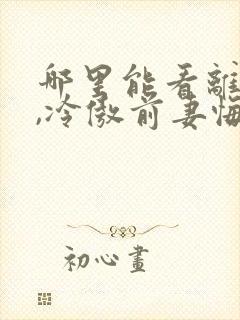 哪里能看離
,冷傲前妻悔
初心畫